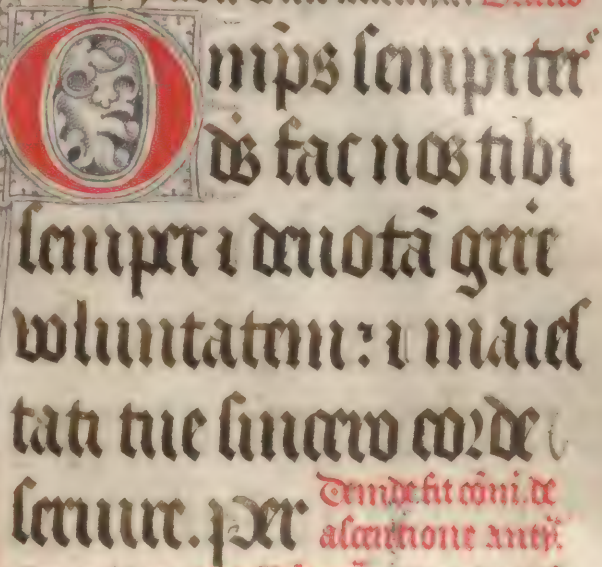 Omps sempiter
ds fac nos tibi
semper ⁊ deuotā gere
voluntatem: ⁊ maies
tati tue sincero corde
seruire. per
Deinde fit cōm. de
ascentione antⷱ.